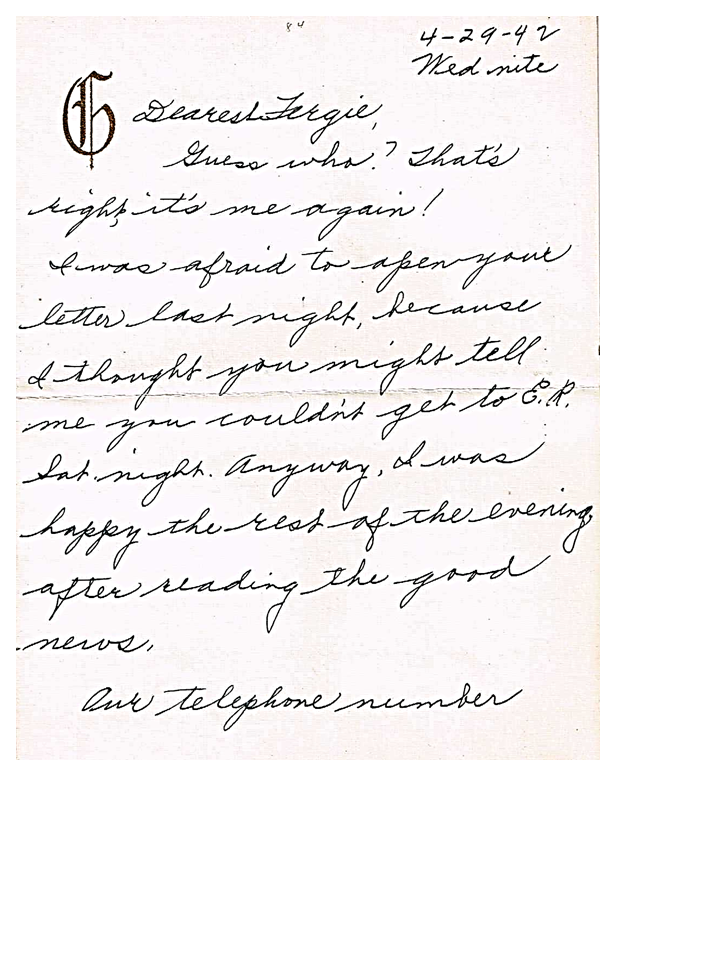 84
4-29-42
Wed nite
G
Dearest Fergie,
Guess who? That's
right, it's me again!
I was afraid to open your
letter last night, because
I thought you might tell
me you couldn't get to E.R.
Sat. night. Anyway, I was
happy the rest of the evening,
after reading the good
news.
Our telephone number